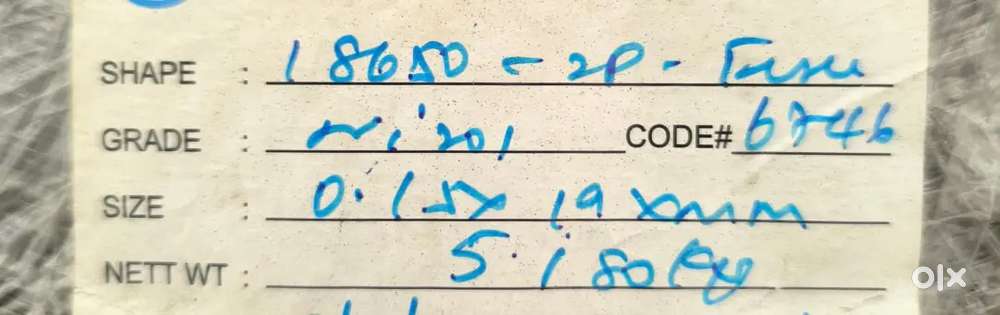 SHAPE : 18650 - 2P - Fuse
GRADE : Ni 201 CODE# 6746
SIZE : 0.15x 19 xmm
NETT WT : 5.180 Kg
olx